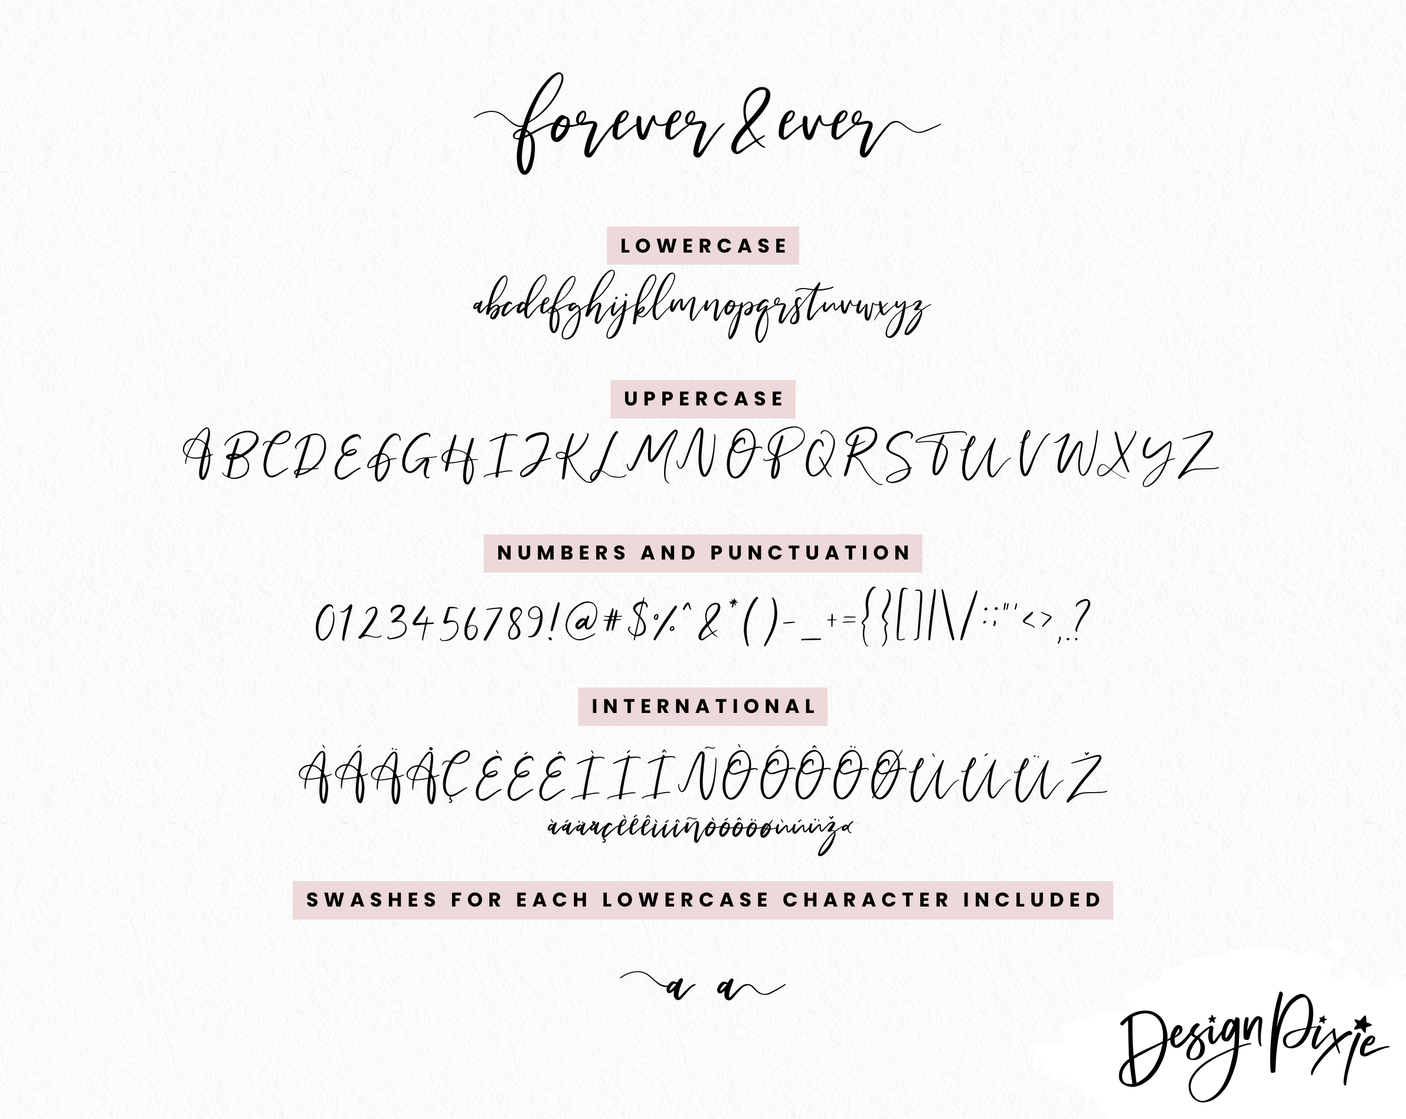 forever & ever
LOWERCASE
abcdefghijklmnopqrstuvwxyz
UPPERCASE
ABCDEFGHIJKLMNOPQRSTUVWXYZ
NUMBERS AND PUNCTUATION
0123456789!@#$%^&*()-_+={}[]|\/:;"'<>,.?
INTERNATIONAL
ÀÁÄÅÇÈÉÊÌÍÎÑÒÓÔÖØÙÚÜŽ
àáäåçèéêìíîñòóôöøùúüž
SWASHES FOR EACH LOWERCASE CHARACTER INCLUDED
a a
Design Pixie